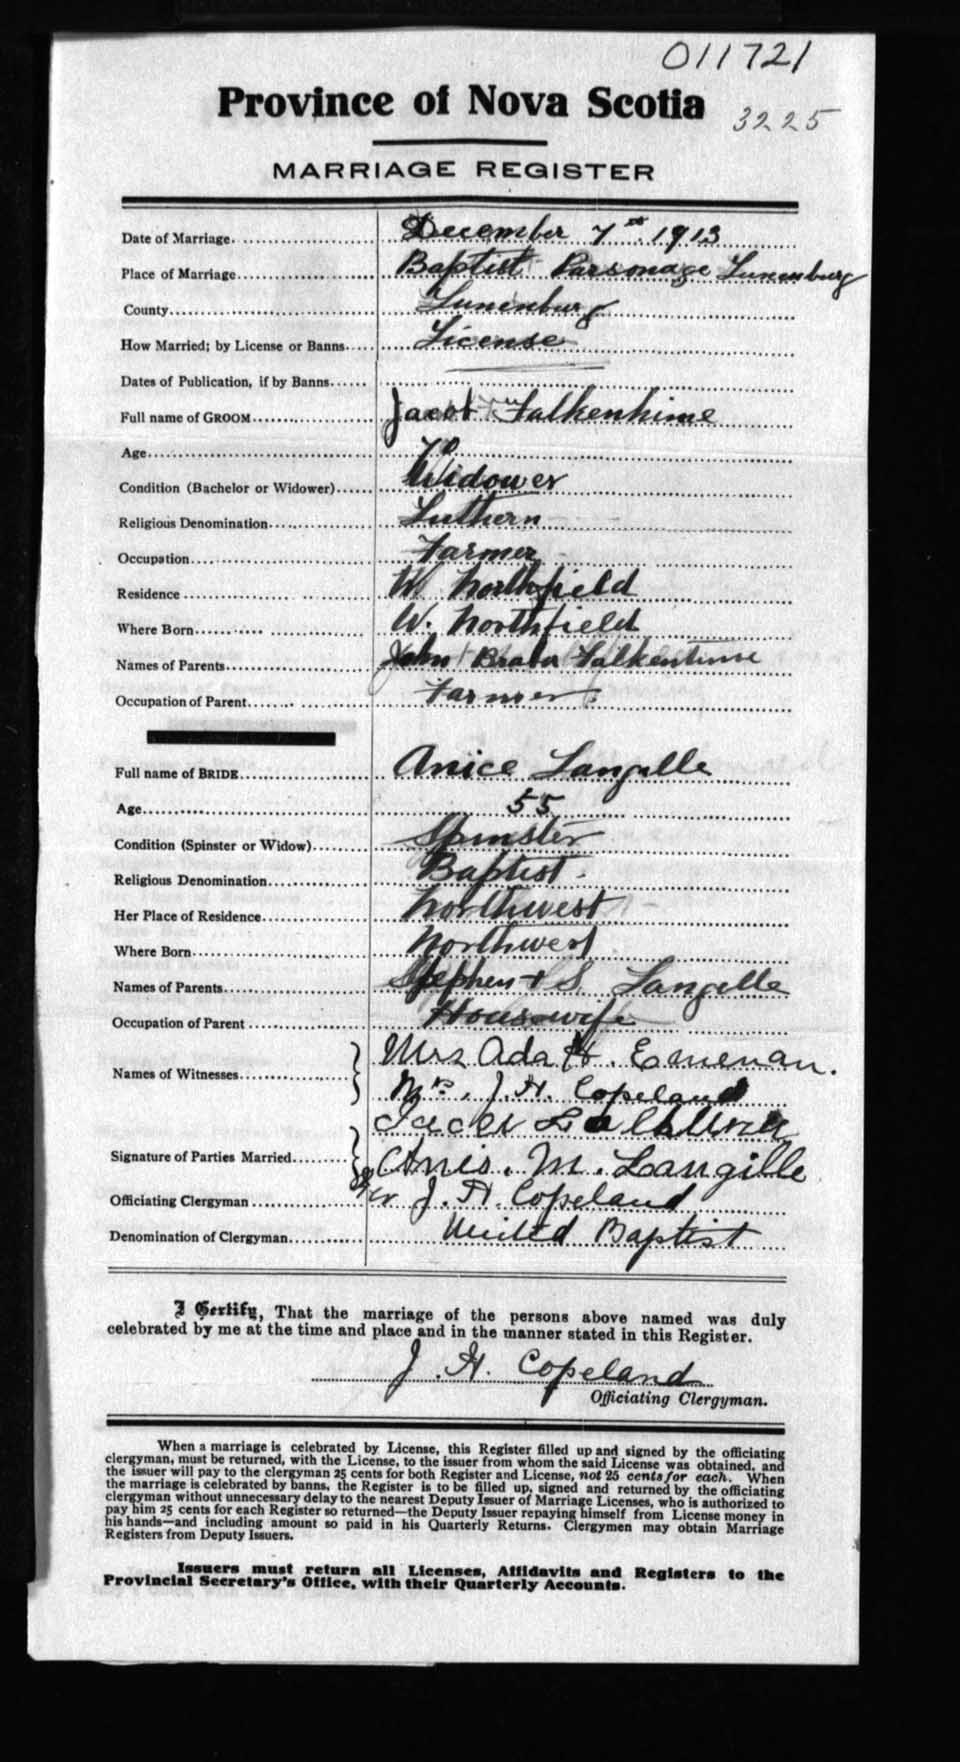 011721
Province of Nova Scotia 3225
MARRIAGE REGISTER
Date of Marriage December 7th 1913
Place of Marriage Baptist Parsonage Lunenburg
County Lunenburg
How Married; by License or Banns License
Dates of Publication, if by Banns
Full name of GROOM Jacob Falkenhime
Age 70
Condition (Bachelor or Widower) Widower
Religious Denomination Luthern
Occupation Farmer
Residence W. Northfield
Where Born W. Northfield
Names of Parents John
Occupation of Parent Farmer
Full name of BRIDE Anice Langille
Age 55
Condition (Spinster or Widow) Spinster
Religious Denomination Baptist.
Her Place of Residence Northwest
Where Born Northwest
Names of Parents Stephen + S. Langille
Occupation of Parent Housewife
Names of Witnesses Mrs Ada H.
Mrs. J. H. Copeland
Signature of Parties Married
Anis. M. Langille
Officiating Clergyman Rev J. H. Copeland
Denomination of Clergyman United Baptist
I Certify, That the marriage of the persons above named was duly
celebrated by me at the time and place and in the manner stated in this Register.
J. H. Copeland
Officiating Clergyman.
When a marriage is celebrated by License, this Register filled up and signed by the officiating
clergyman, must be returned, with the License, to the issuer from whom the said License was obtained, and
the issuer will pay to the clergyman 25 cents for both Register and License, not 25 cents for each. When
the marriage is celebrated by banns, the Register is to be filled up, signed and returned by the officiating
clergyman without unnecessary delay to the nearest Deputy Issuer of Marriage Licenses, who is authorized to
pay him 25 cents for each Register so returned—the Deputy Issuer repaying himself from License money in
his hands—and including amount so paid in his Quarterly Returns. Clergymen may obtain Marriage
Registers from Deputy Issuers.
Issuers must return all Licenses, Affidavits and Registers to the
Provincial Secretary's Office, with their Quarterly Accounts.